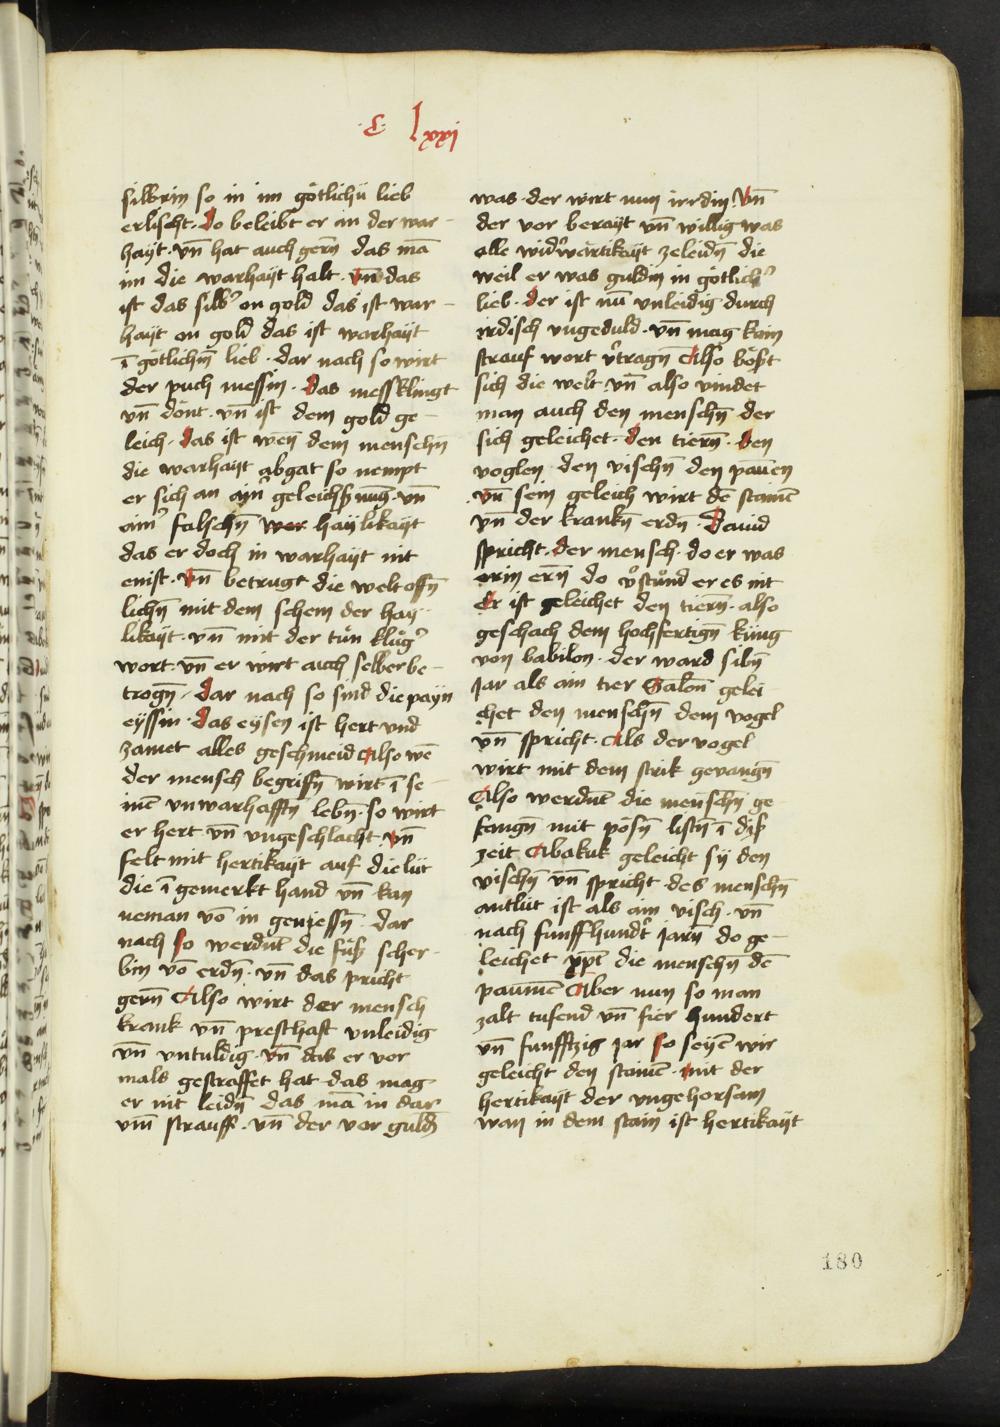 ·C· lxxj
silbrin so in im götlichü lieb
erlischt · Do beleibt er in der war-
hayt · vn̄ hat auch gern̄ das mā
im die warhayt halt · vnd das
ist das silb' on gold das ist war-
hayt on gold das ist warhayt
ī götlichn̄ lieb · dar nach so wirt
der puch messin · Das mess klingt
vn̄ dönt · vn̄ ist dem gold ge-
leich · das ist wen̄ dem menschn̄
die warhayt abgat so nempt
er sich an ain' geleichsnug · vn̄
ain' falschn̄ haylikayt
das er doch in warhayt nit
enist · vn̄ betrugt die welt offn̄
lichn̄ mit dem schem der hay-
likayt · vn̄ mit der tůn klůg'
wort · vn̄ er wirt auch selber be-
trogn̄ · Dar nach so sind die payn
eyssin · Das eysen ist hert vnd
zamet alles geschmeid Also wē
der mensch begriffn̄ wirt ī se-
inē vnwarhafftn̄ lebn̄ · so wirt
er hert vn̄ vngeschlacht · vn̄
felt mit hertikayt auf die lüt
die ī gemerkt hand vn̄ kan
neman vō in geniessn̄ · dar
nach so werdnt die füß scher-
bin vō erdn̄ · vn̄ das pricht
gern̄ Also wirt der mensch
krank vn̄ presthaft vnleidig
vn̄ vntuldig · vn̄ das er vor
mals gestraffet hat · das mag
er nit leidn̄ das mā in dar
vm̄ strauff · vn̄ der vor guldin
was · der wirt nun irrdin · Vn̄
der vor berayt vn̄ willig was
alle wid'wärtikayt zeleidn̄ die
weil er was guldin in götlich'
lieb · Der ist nū vnleidig durch
irdisch vngeduld · vn̄ mag kain
strauf wort v'tragn̄ Also bößt
sich die welt vn̄ also vindet
man auch den menschn̄ der
sich geleichet · den tiern̄ · den
voglen · den vischn̄ den pauen
· vn̄ sein geleich wirt dē stainē
vn̄ der krankn̄ erdn̄ · Dauid
spricht · der mensch · do er was
in ern̄ do v'stůnd er es nit
Er ist geleichet den tiern̄ · also
geschach dem hochfertign̄ küng
von babilon · der ward sibn̄
Jar als ain tier Salon̄ gelei
chet den menschn̄ dem vogel
vn̄ spricht · Als der vogel
wirt mit dem strik gevangn̄
Also werdnt die menschn̄ ge
fangn̄ mit pösn̄ listn̄ ī diß
zeit Abakuk geleicht sÿ den
vischn̄ vn̄ spricht · des menschn̄
antlüt ist als ain visch · vn̄
nach funffhundt' jarn̄ do ge-
leichet xp̄t die menschn̄ dē
paumē Aber nun so man
zalt tusend vn̄ fier hundert
vn̄ funfftzig jar so seyē wir
geleicht den stainē · mit der
hertikayt der vngehorsam
wan in dem stain ist hertikayt
180